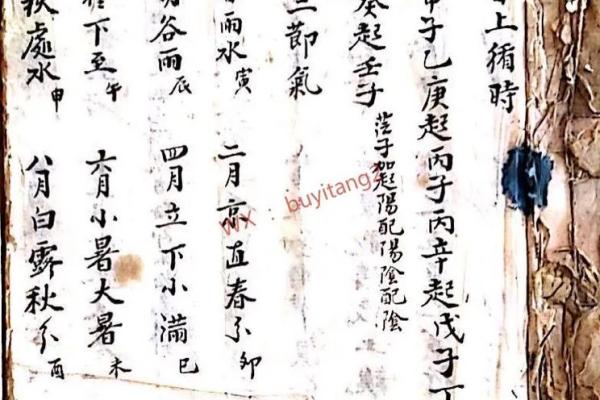 上循時
甲子乙庚起丙子丙辛起戊子丁
癸起壬子
子起陽配陽陰配陰
二節氣
雨水寅 二月京直春分卯
谷雨辰 四月立下小滿巳
下至午 六月小暑大暑未
處水申 八月白露秋分酉
WX：buyitang